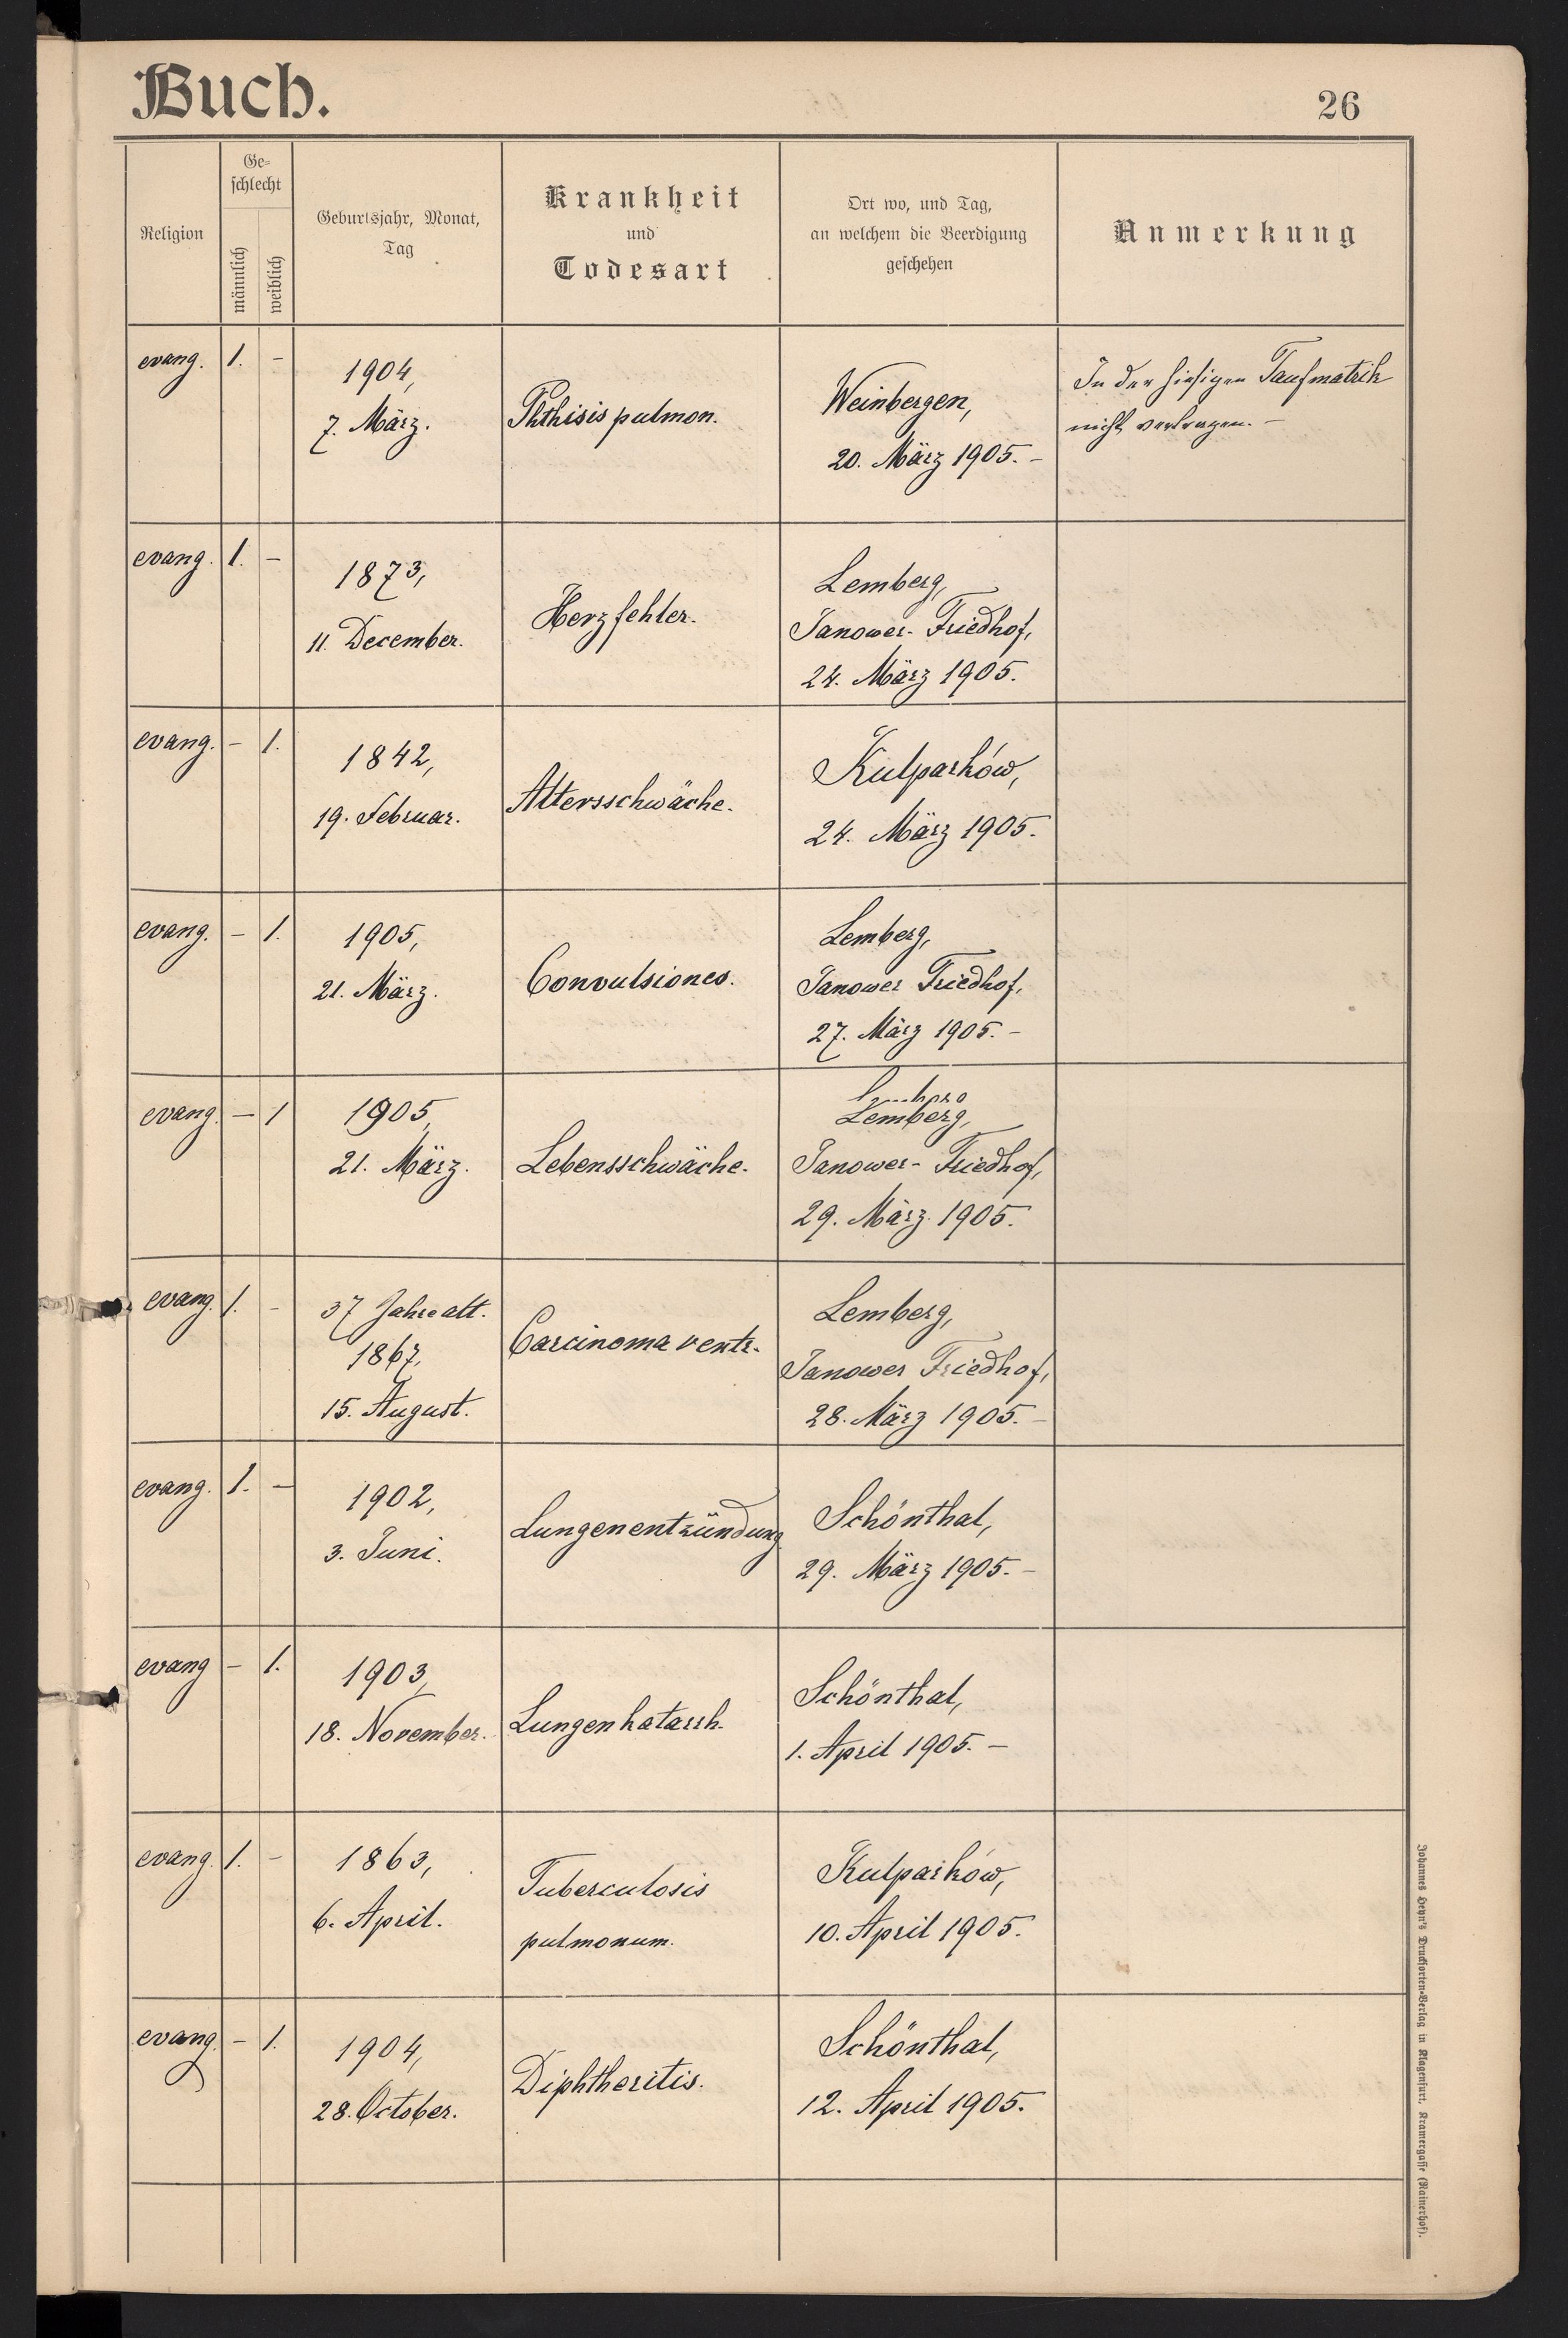 Buch.
26
Religion
Ge-
schlecht
männlich
weiblich
Geburtsjahr, Monat,
Tag
Krankheit
und
Todesart
Ort wo, und Tag,
an welchem die Beerdigung
geschehen
Anmerkung
evang. 1. -
1904,
7. März.
Phthisis pulmon.
Weinbergen,
20. März 1905. -
In der hiesigen Taufmatrik
nicht vertragen. -
evang. 1. -
1873,
11. December.
Herzfehler.
Lemberg,
Janower- Friedhof,
24. März 1905.
evang. - 1.
1842,
19. Februar.
Altersschwäche.
Kulparków,
24. März 1905.
evang. - 1.
1905,
21. März.
Convulsiones.
Lemberg,
Janower Friedhof,
27. März 1905. -
evang. - 1
1905,
21. März.
Lebensschwäche.
Lemberg,
Janower- Friedhof,
29. März 1905.
evang. 1. -
37 Jahre alt.
1867,
15. August.
Carcinoma ventr.
Lemberg,
Janower Friedhof,
28. März 1905. -
evang. 1. -
1902,
3. Juni.
Lungenentzündung.
Schönthal,
29. März 1905. -
evang - 1.
1903,
18. November.
Lungenkatarrh.
Schönthal,
1. April 1905. -
evang. 1. -
1863,
6. April.
Tuberculosis
pulmonum.
Kulparków,
10. April 1905.
evang. - 1.
1904,
28. October.
Diphtheritis.
Schönthal,
12. April 1905.
Johannes Heyn's Drucksorten-Verlag in Klagenfurt, Kramergasse (Rainerhof).